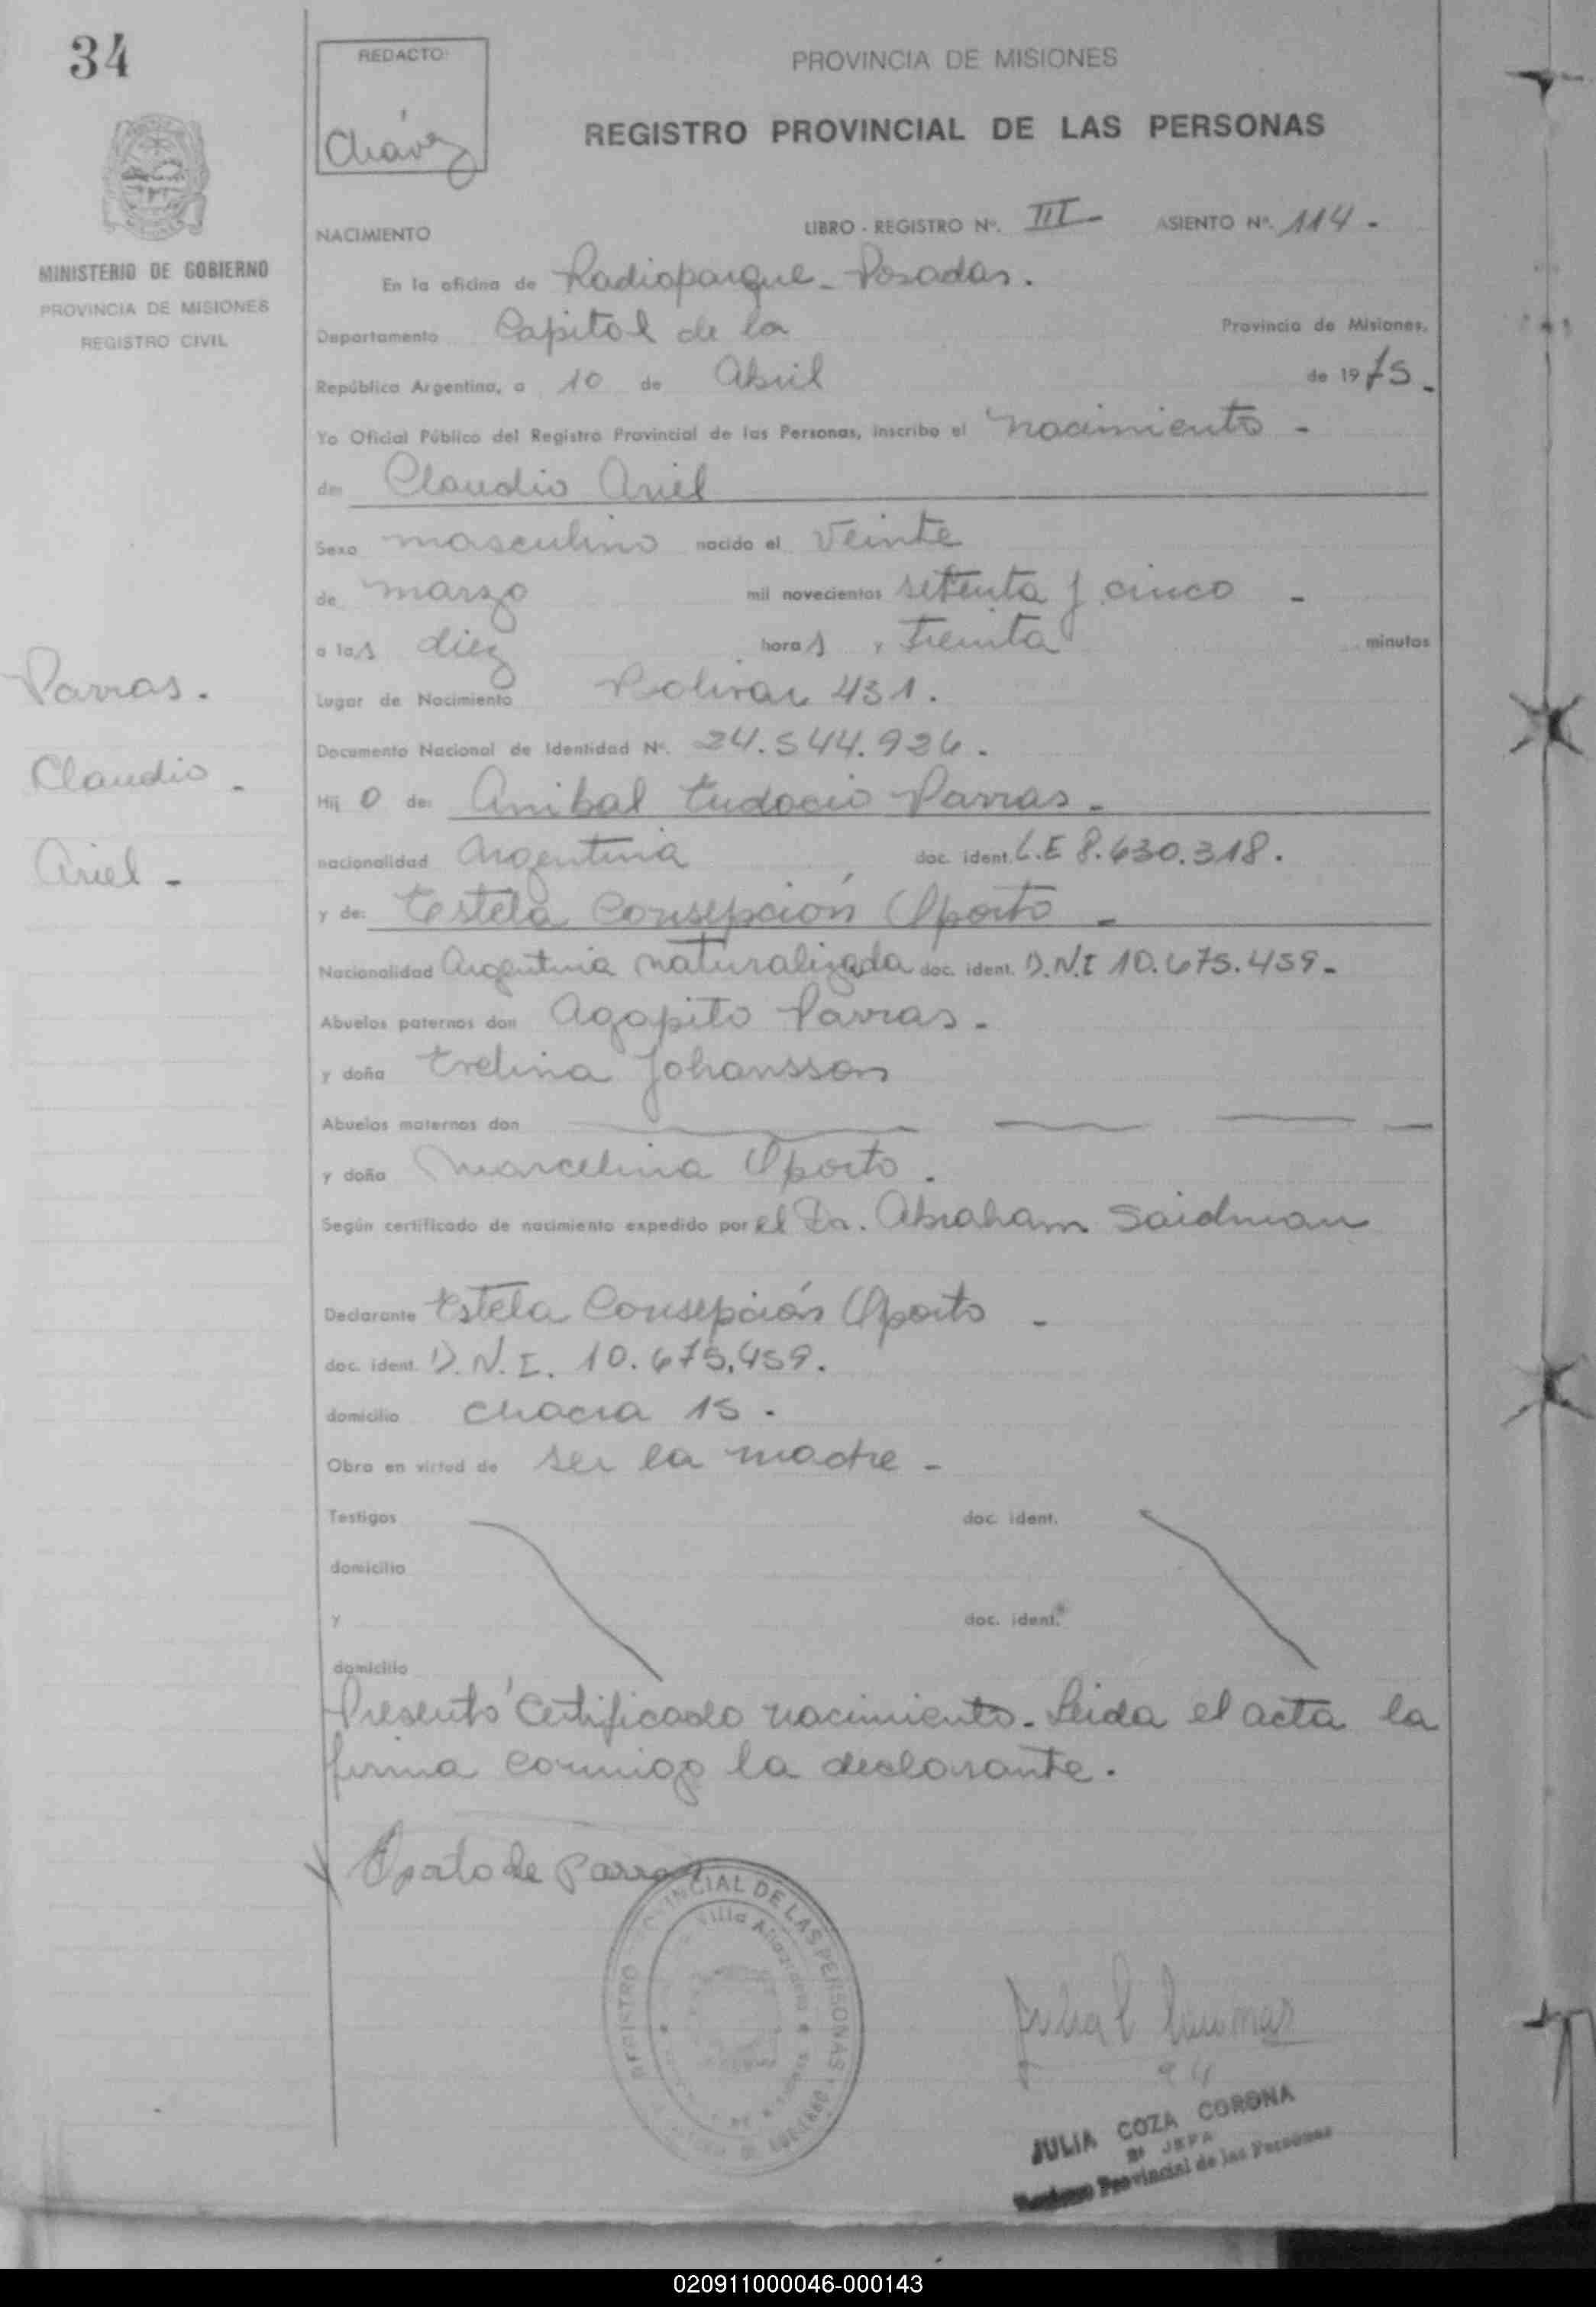 34
REDACTO:
Chávez
PROVINCIA DE MISIONES
REGISTRO PROVINCIAL DE LAS PERSONAS
MINISTERIO DE GOBIERNO
PROVINCIA DE MISIONES
REGISTRO CIVIL
NACIMIENTO
LIBRO - REGISTRO Nº. III - ASIENTO Nº. 114 -
En la oficina de Radioparque - Posadas.
Departamento Capital de la Provincia de Misiones,
República Argentina, a 10 de Abril de 1975 -
Yo Oficial Público del Registro Provincial de las Personas, inscribo el nacimiento -
de: Claudio Ariel
Sexo masculino nacido el veinte
de marzo mil novecientos setenta y cinco -
a las diez horas y treinta minutos
Lugar de Nacimiento Bolivar 431.
Documento Nacional de Identidad Nº. 24.544.926.
Hijo de: Anibal Eudocio Parras -
nacionalidad Argentina doc. ident. L.E 8.630.318.
y de: Estela Consepción Oporto -
Nacionalidad Argentina naturalizada doc. ident. D.N.I 10.675.459-
Abuelos paternos don Agapito Parras -
y doña Evelina Johansson
Abuelos maternos don
y doña Marcelina Oporto.
Según certificado de nacimiento expedido por el Dr. Abraham Saidman
Declarante Estela Consepción Oporto -
doc. ident. D.N.I. 10.675.459.
domicilio chacra 15.
Obra en virtud de ser la madre -
Testigos doc. ident.
domicilio
y doc. ident.
domicilio
Presentó certificado nacimiento - Leida el acta la
firma conmigo la declarante.
Parras.
Claudio -
Ariel -
Oporto de Parras
REGISTRO PROVINCIAL DE LAS PERSONAS
Villa
JULIA COZA CORONA
JEFA
Provincial de las Personas
020911000046-000143